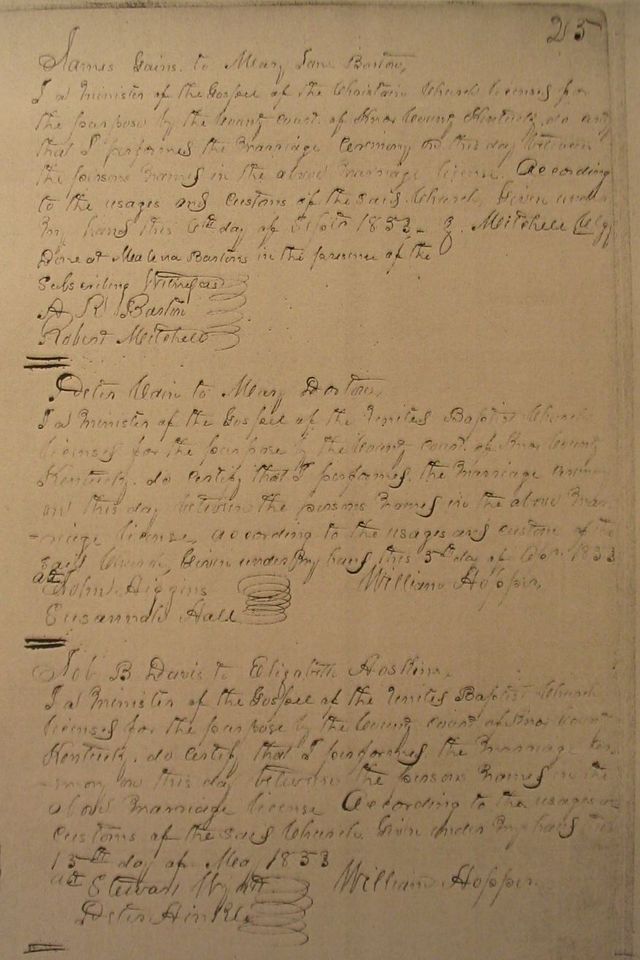 25
James Gains to Mary Jane Barton,
I a Minister of the Gospel of the Christain Church licensed for
the purpose by the County Court of Knox County Kentucky do certify
that I performed the Marriage Ceremony on this day between
the persons Named in the above Marriage license. According
to the usages and customs of the said Church, Given under
My hand this 6th day of 1853 Mitchell
Done at Barton's in the presence of the
Subscribing Witnesses
A R Barton
Robert Mitchell
Peter Cain to Mary
I a Minister of the Gospel of the United Baptist Church
licensed for the purpose by the County Court of Knox County
Kentucky, do certify that I performed, the Marriage
on this day between the persons Named in the above Mar-
-riage license, according to the usages and custom of the
said Church, Given under My hand this 5th day of 1853
att John Higgins William Hopper
Susannah Hall
Job B Davis to Elizabeth Hoskins,
I a Minister of the Gospel of the United Baptist Church
licensed for the purpose by the County Court of Knox County
Kentucky, do certify that I performed, the Marriage Cere-
-mony on this day between the persons Named in the
above Marriage license According to the usages
customs of the said Church Given under My hand this
15th day of May 1853
att Stewart William Hopper
Peter Hinkle